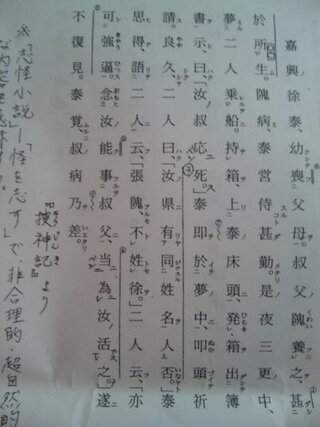 嘉興徐泰、幼喪父母。叔父隗養之、甚
於所生。隗病、泰営侍甚勤。是夜三更中、
夢二人乗船、持箱、上泰床頭、発箱出簿
書示曰、「汝叔応死。」泰即於夢中、叩頭祈
請。良久、二人曰、「汝県有同姓名人否。」泰
思得、語二人云、「張隗、不姓徐。」二人云、「亦
可強逼。念汝能事叔父、当為汝活之。」遂
不復見。泰覚、叔病乃差。
『捜神記』より
※「志怪小説」―「怪を志す」で、非合理的・超自然的